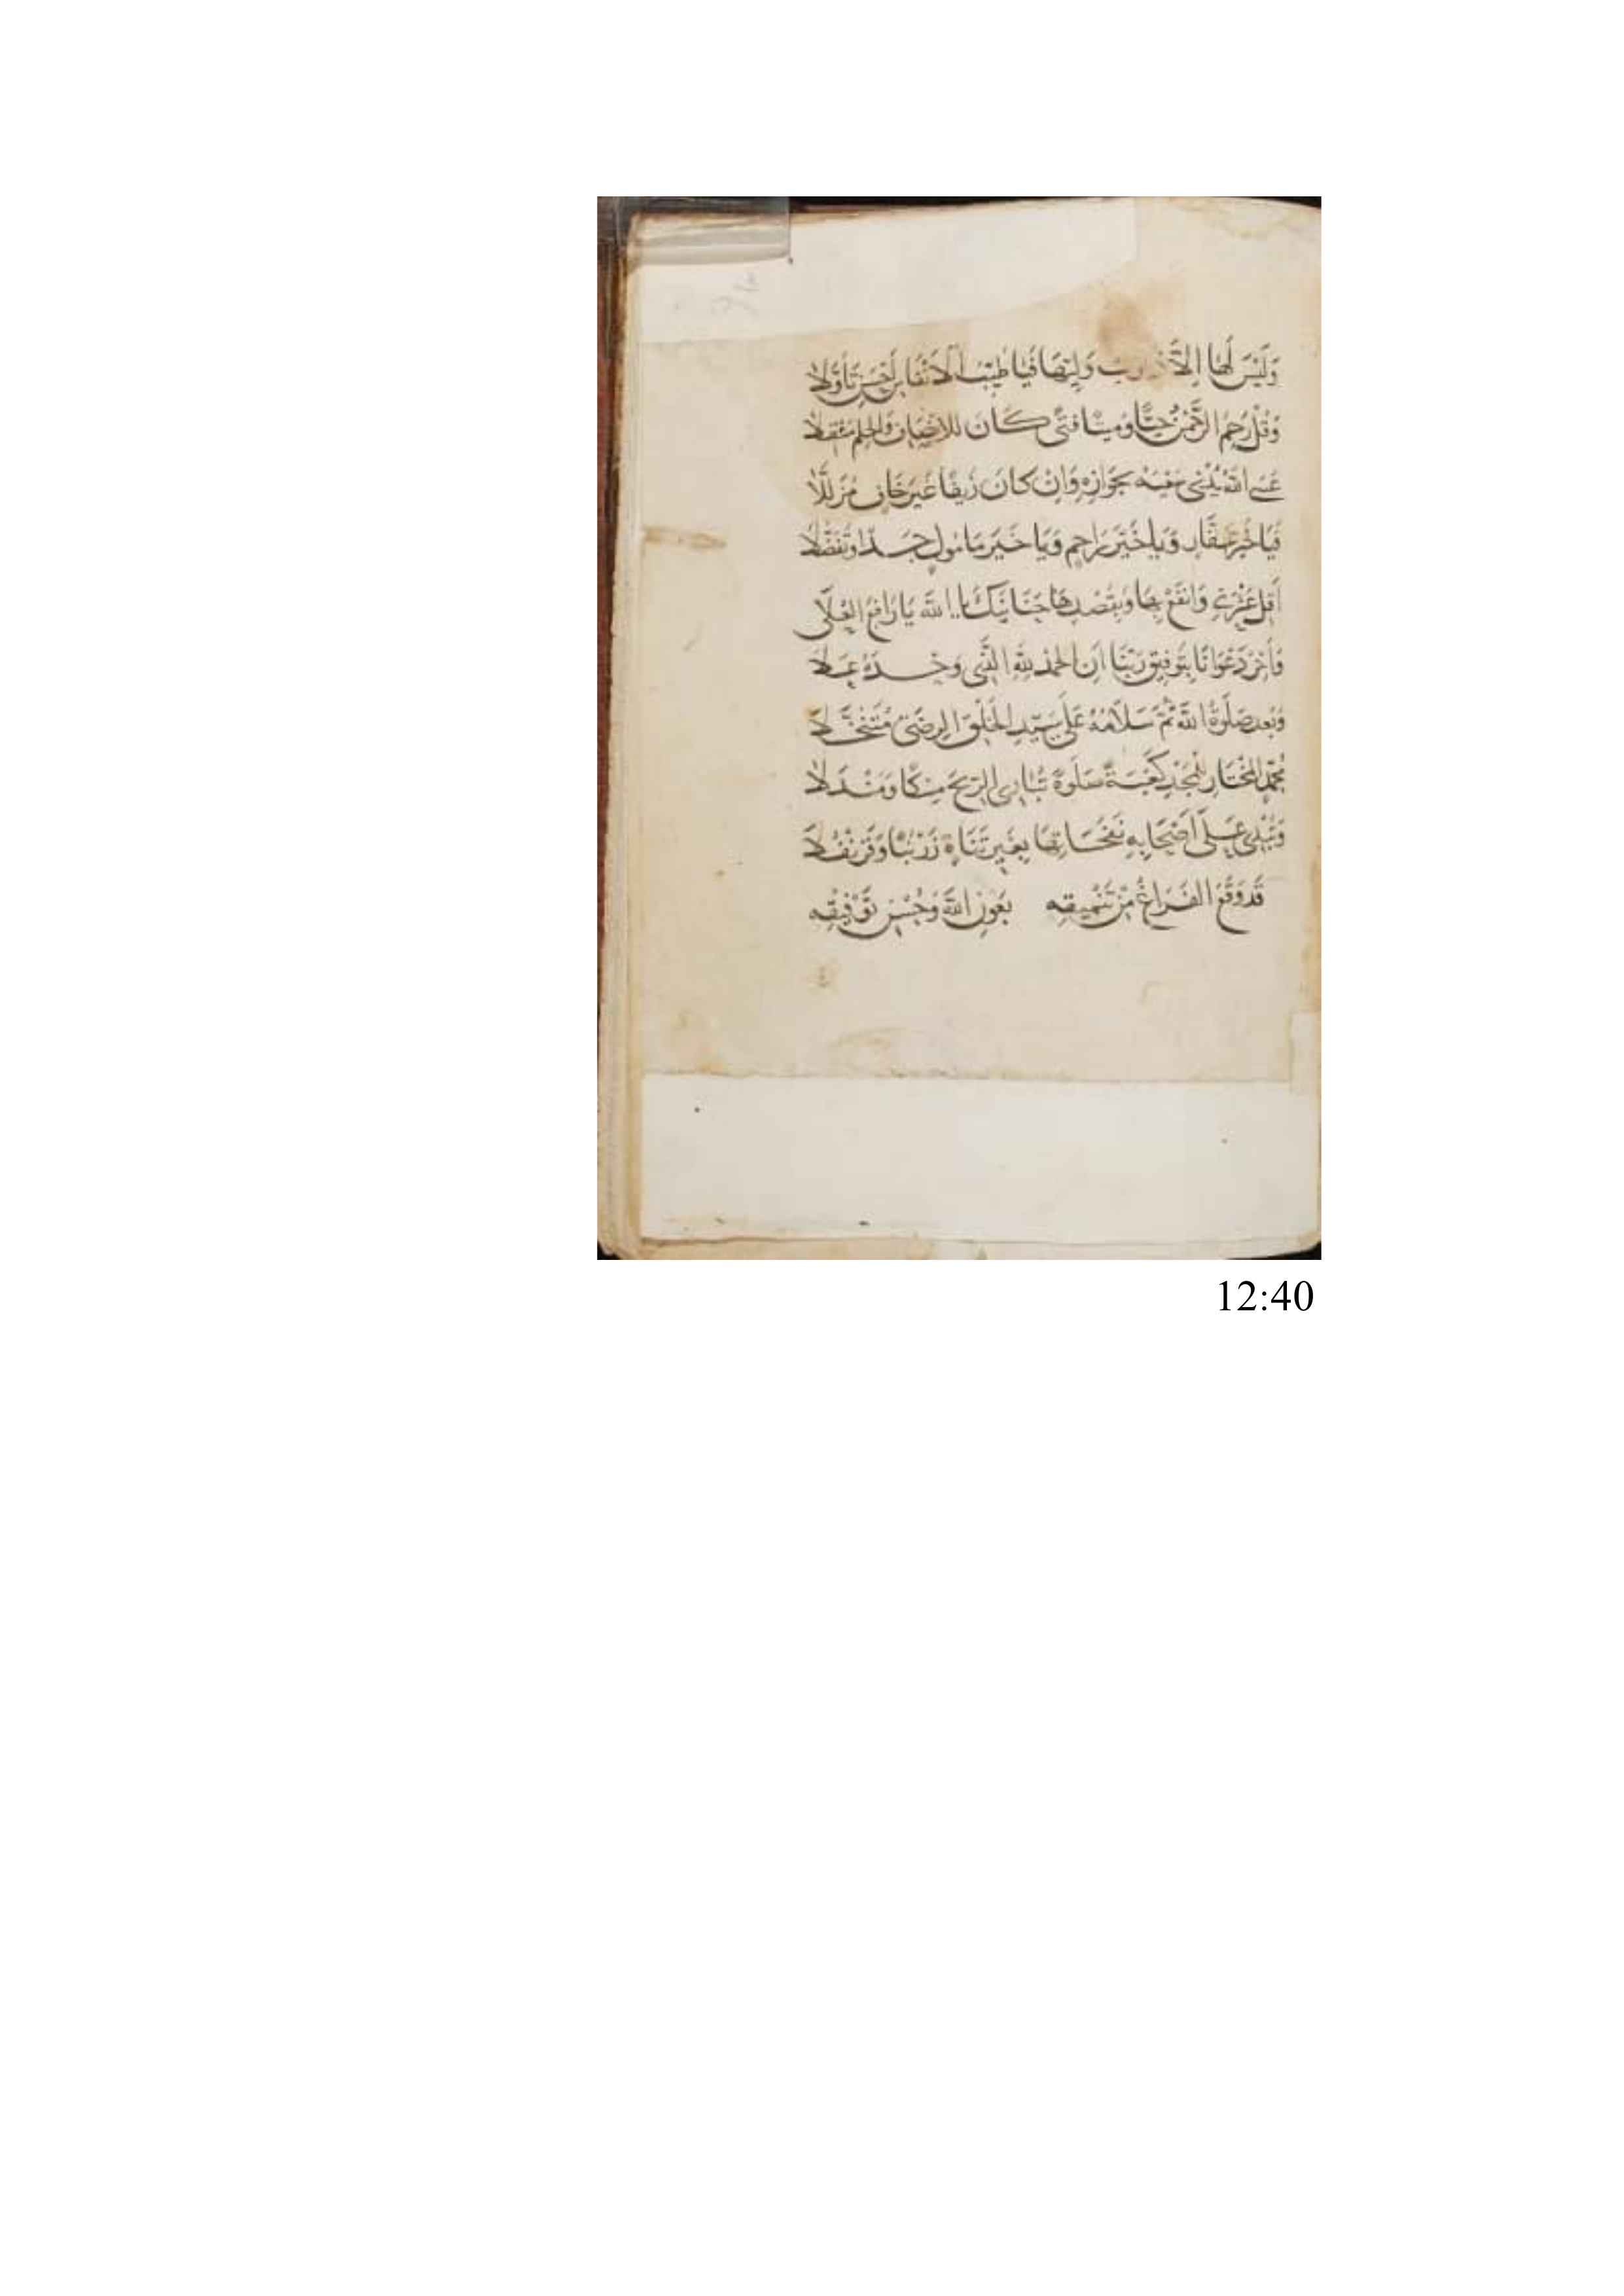 وَلَيْسَ لَهَا اِلَّا ذُنُوبُ وَلِيِّهَا فَيَا طَيِّبَ الْاَنْفَاسِ اَحْسِنْ تَأَوُّلَا
وَقُلْ رَحِمَ الرَّحْمٰنُ حَيًّا وَمَيِّتًا فَتًى كَانَ لِلْاِنْصَافِ وَالْحِلْمِ مَعْقِلَا
عَسَى اللّٰهُ يُدْنِى سَعْيَهُ بِجَوَازِهِ وَاِنْ كَانَ زَيْفًا غَيْرَ خَافٍ مُزَلَّلَا
فَيَا خَيْرَ غَفَّارٍ وَيَا خَيْرَ رَاحِمٍ وَيَا خَيْرَ مَامُولٍ جَدًا وَتَفَضُّلَا
اَقِلْ عَثْرَتِى وَانْفَعْ بِهَا وَبِقَصْدِهَا حَنَانَيْكَ يَا اَللّٰهُ يَا رَافِعَ الْعُلَى
وَاٰخِرُ دَعْوَانَا بِتَوْفِيقِ رَبِّنَا اَنِ الْحَمْدُ لِلّٰهِ الَّذِى وَحْدَهُ عَلَا
وَبَعْدُ صَلٰوةُ اللّٰهِ ثُمَّ سَلَامُهُ عَلَى سَيِّدِ الْخَلْقِ الرِّضَى مُتَنَخَّلَا
مُحَمَّدٍ الْمُخْتَارِ لِلْمَجْدِ كَعْبَةً صَلٰوةً تُبَارِى الرِّيحَ مِسْكًا وَمَنْدَلَا
وَتُبْدِى عَلَى اَصْحَابِهِ نَفَحَاتِهَا بِغَيْرِ تَنَاهٍ زَرْنَبًا وَقَرَنْفُلَا
قَدْ وَقَعَ الْفَرَاغُ مِنْ تَنْمِيقِه بِعَوْنِ اللّٰهِ وَحُسْنِ تَوْفِيقِه
12:40